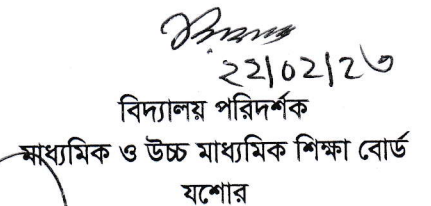 ২২/০২/২৩
বিদ্যালয় পরিদর্শক
মাধ্যমিক ও উচ্চ মাধ্যমিক শিক্ষা বোর্ড
যশোর